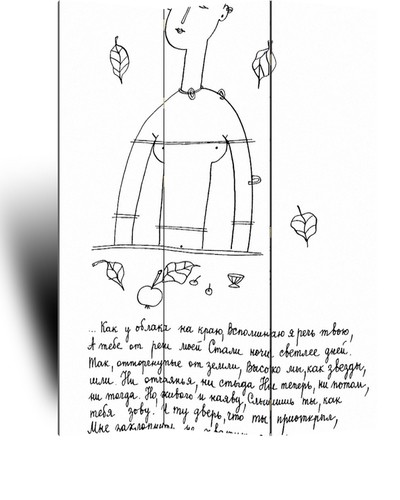 ... Как у облака на краю, Вспоминаю я речь твою,
А тебе от речи моей Стали ночи светлее дней.
Так, отторгнутые от земли, Высоко мы, как звезды,
шли. Ни отчаянья, ни стыда Ни теперь, ни потом,
ни тогда. Но живого и наяву, Слышишь ты, как
тебя зову. И ту дверь, что ты приоткрыл,
Мне захлопнуть не